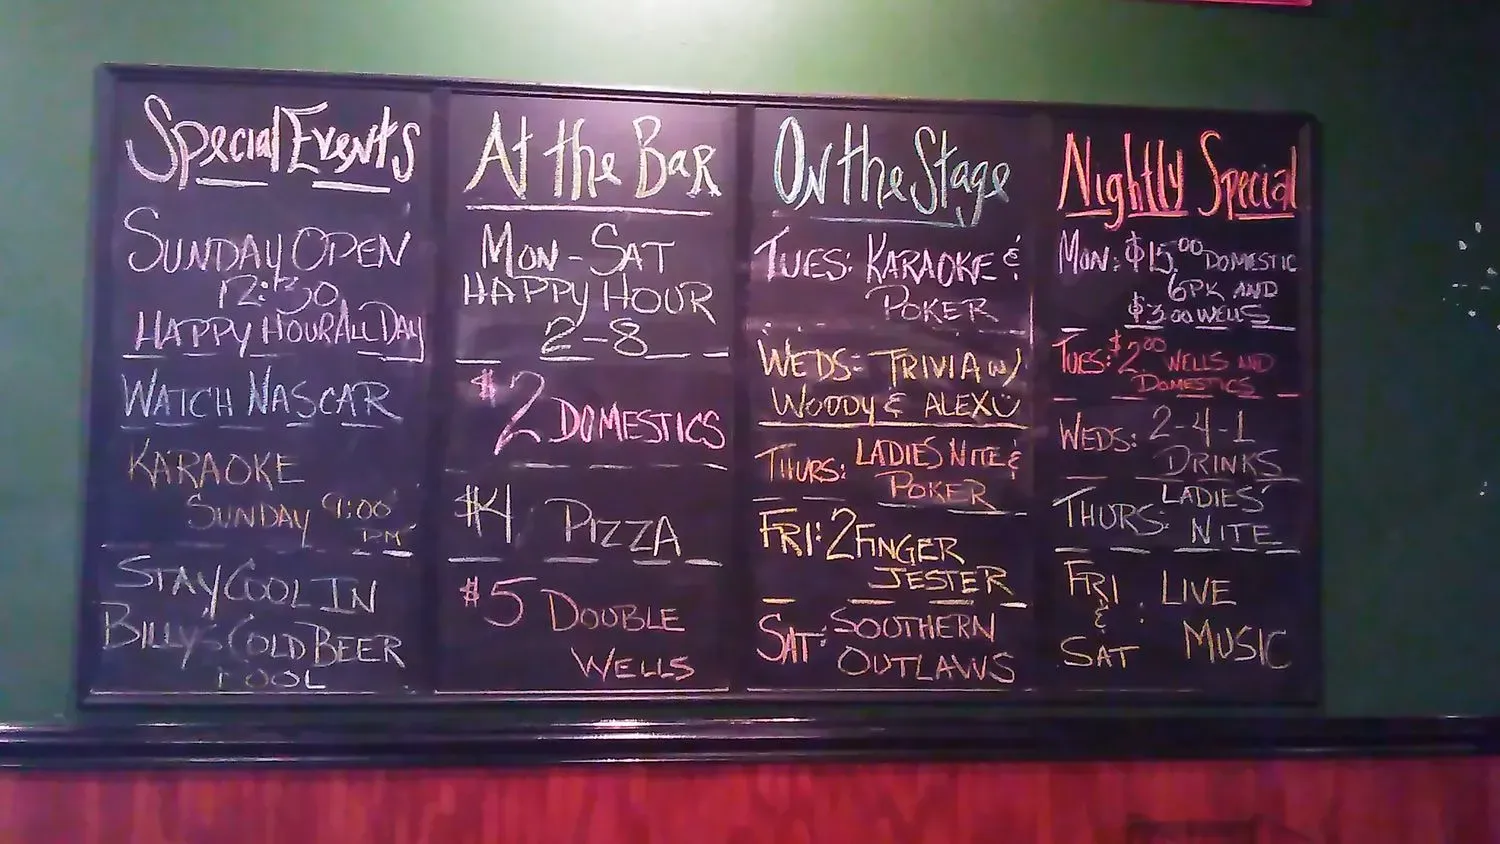 Special Events
SUNDAY OPEN
12:30
HAPPY HOUR ALL DAY
WATCH NASCAR
KARAOKE
SUNDAY 9:00
PM
STAY COOL IN
BILLY'S COLD BEER
POOL
At the Bar
MON-SAT
HAPPY HOUR
2-8
$2 DOMESTICS
$4 PIZZA
$5 DOUBLE
WELLS
On the Stage
TUES: KARAOKE &
POKER
WEDS- TRIVIA W/
WOODY & ALEX
THURS: LADIES NITE &
POKER
FRI: 2 FINGER
JESTER
SAT: SOUTHERN
OUTLAWS
Nightly Special
MON: $15.00 DOMESTIC
6PK AND
$3.00 WELLS
TUES: $2.00 WELLS AND
DOMESTICS
WEDS: 2-4-1
DRINKS
THURS: LADIES'
NITE
FRI LIVE
&
SAT MUSIC